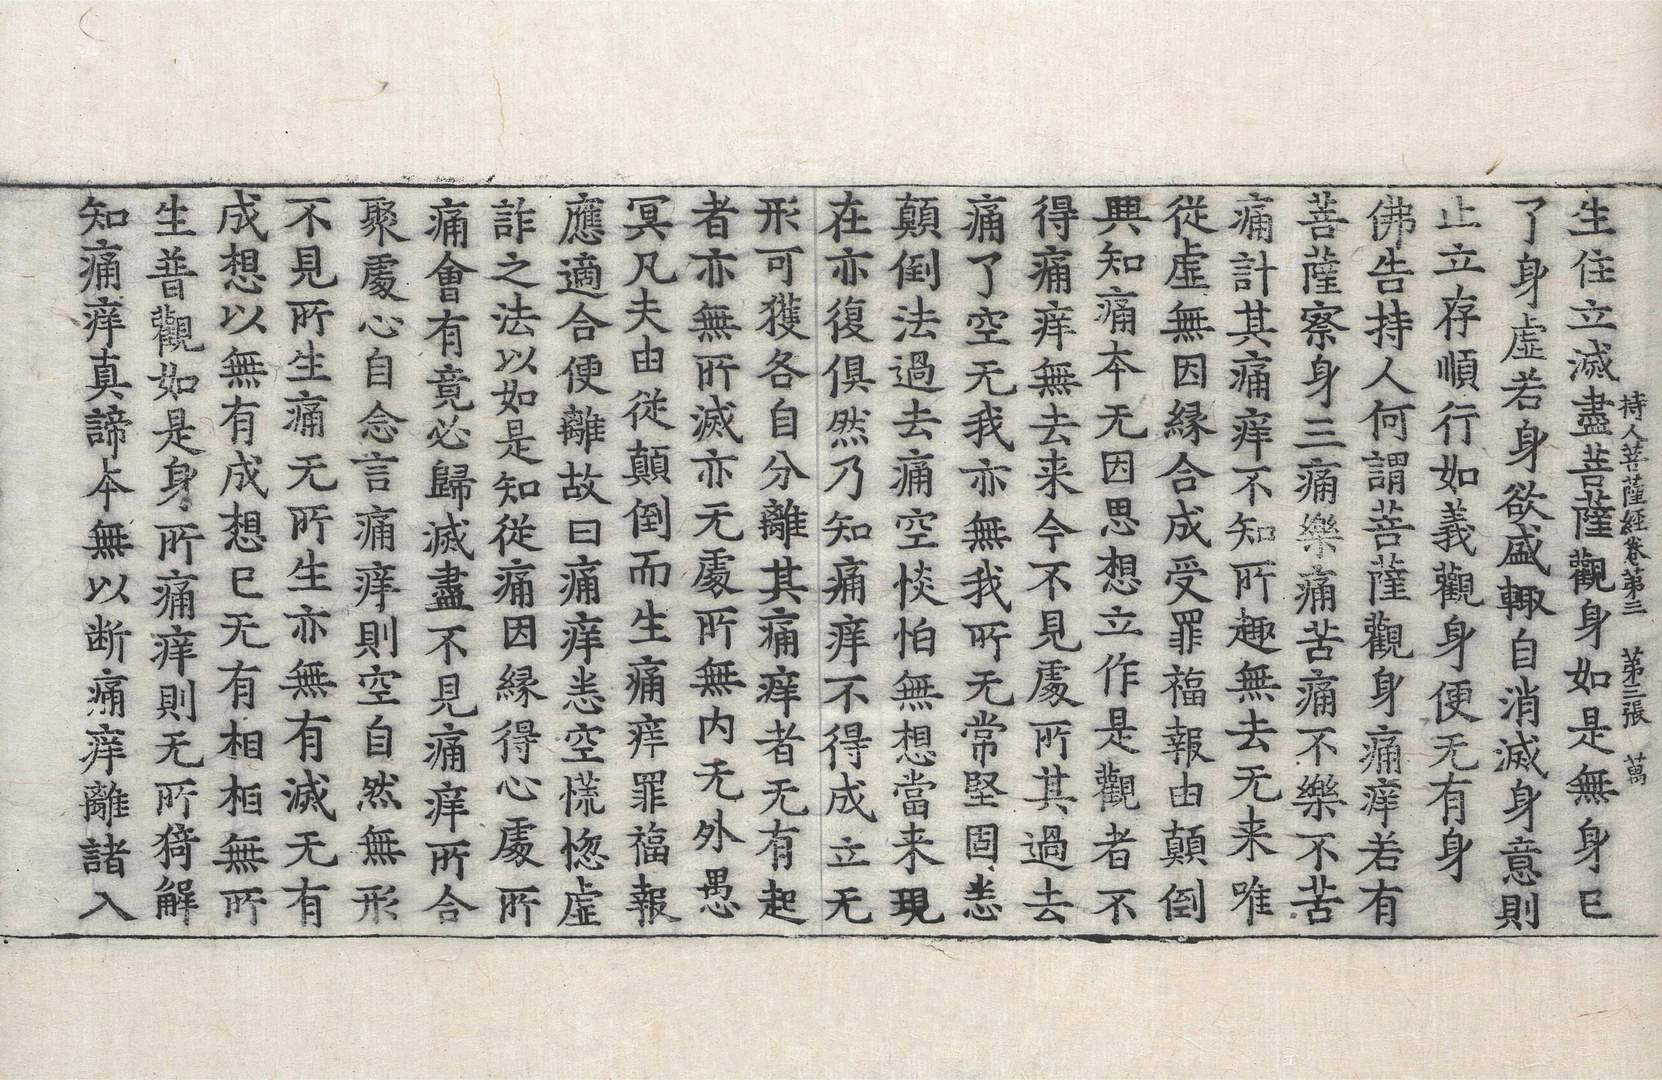 持人菩薩經卷第三　第三張　萬
生住立滅盡菩薩觀身如是無身已
了身虛若身欲盛輙自消滅身意則
止立存順行如義觀身便无有身
佛告持人何謂菩薩觀身痛痒若有
菩薩察身三痛樂痛苦痛不樂不苦
痛計其痛痒不知所趣無去无来唯
從虛無因縁合成受罪福報由顛倒
興知痛本无因思想立作是觀者不
得痛痒無去来今不見處所其過去
痛了空无我亦無我所无常堅固悉
顛倒法過去痛空惔怕無想當来現
在亦復俱然乃知痛痒不得成立无
形可獲各自分離其痛痒者无有起
者亦無所滅亦无處所無内无外愚
冥凡夫由從顛倒而生痛痒罪福報
應適合便離故曰痛痒悉空慌惚虛
詐之法以如是知從痛因縁得心處所
痛會有竟必歸滅盡不見痛痒所合
聚處心自念言痛痒則空自然無形
不見所生痛无所生亦無有滅无有
成想以無有成想已无有相相無所
生普觀如是身所痛痒則无所猗解
知痛痒真諦本無以断痛痒離諸入